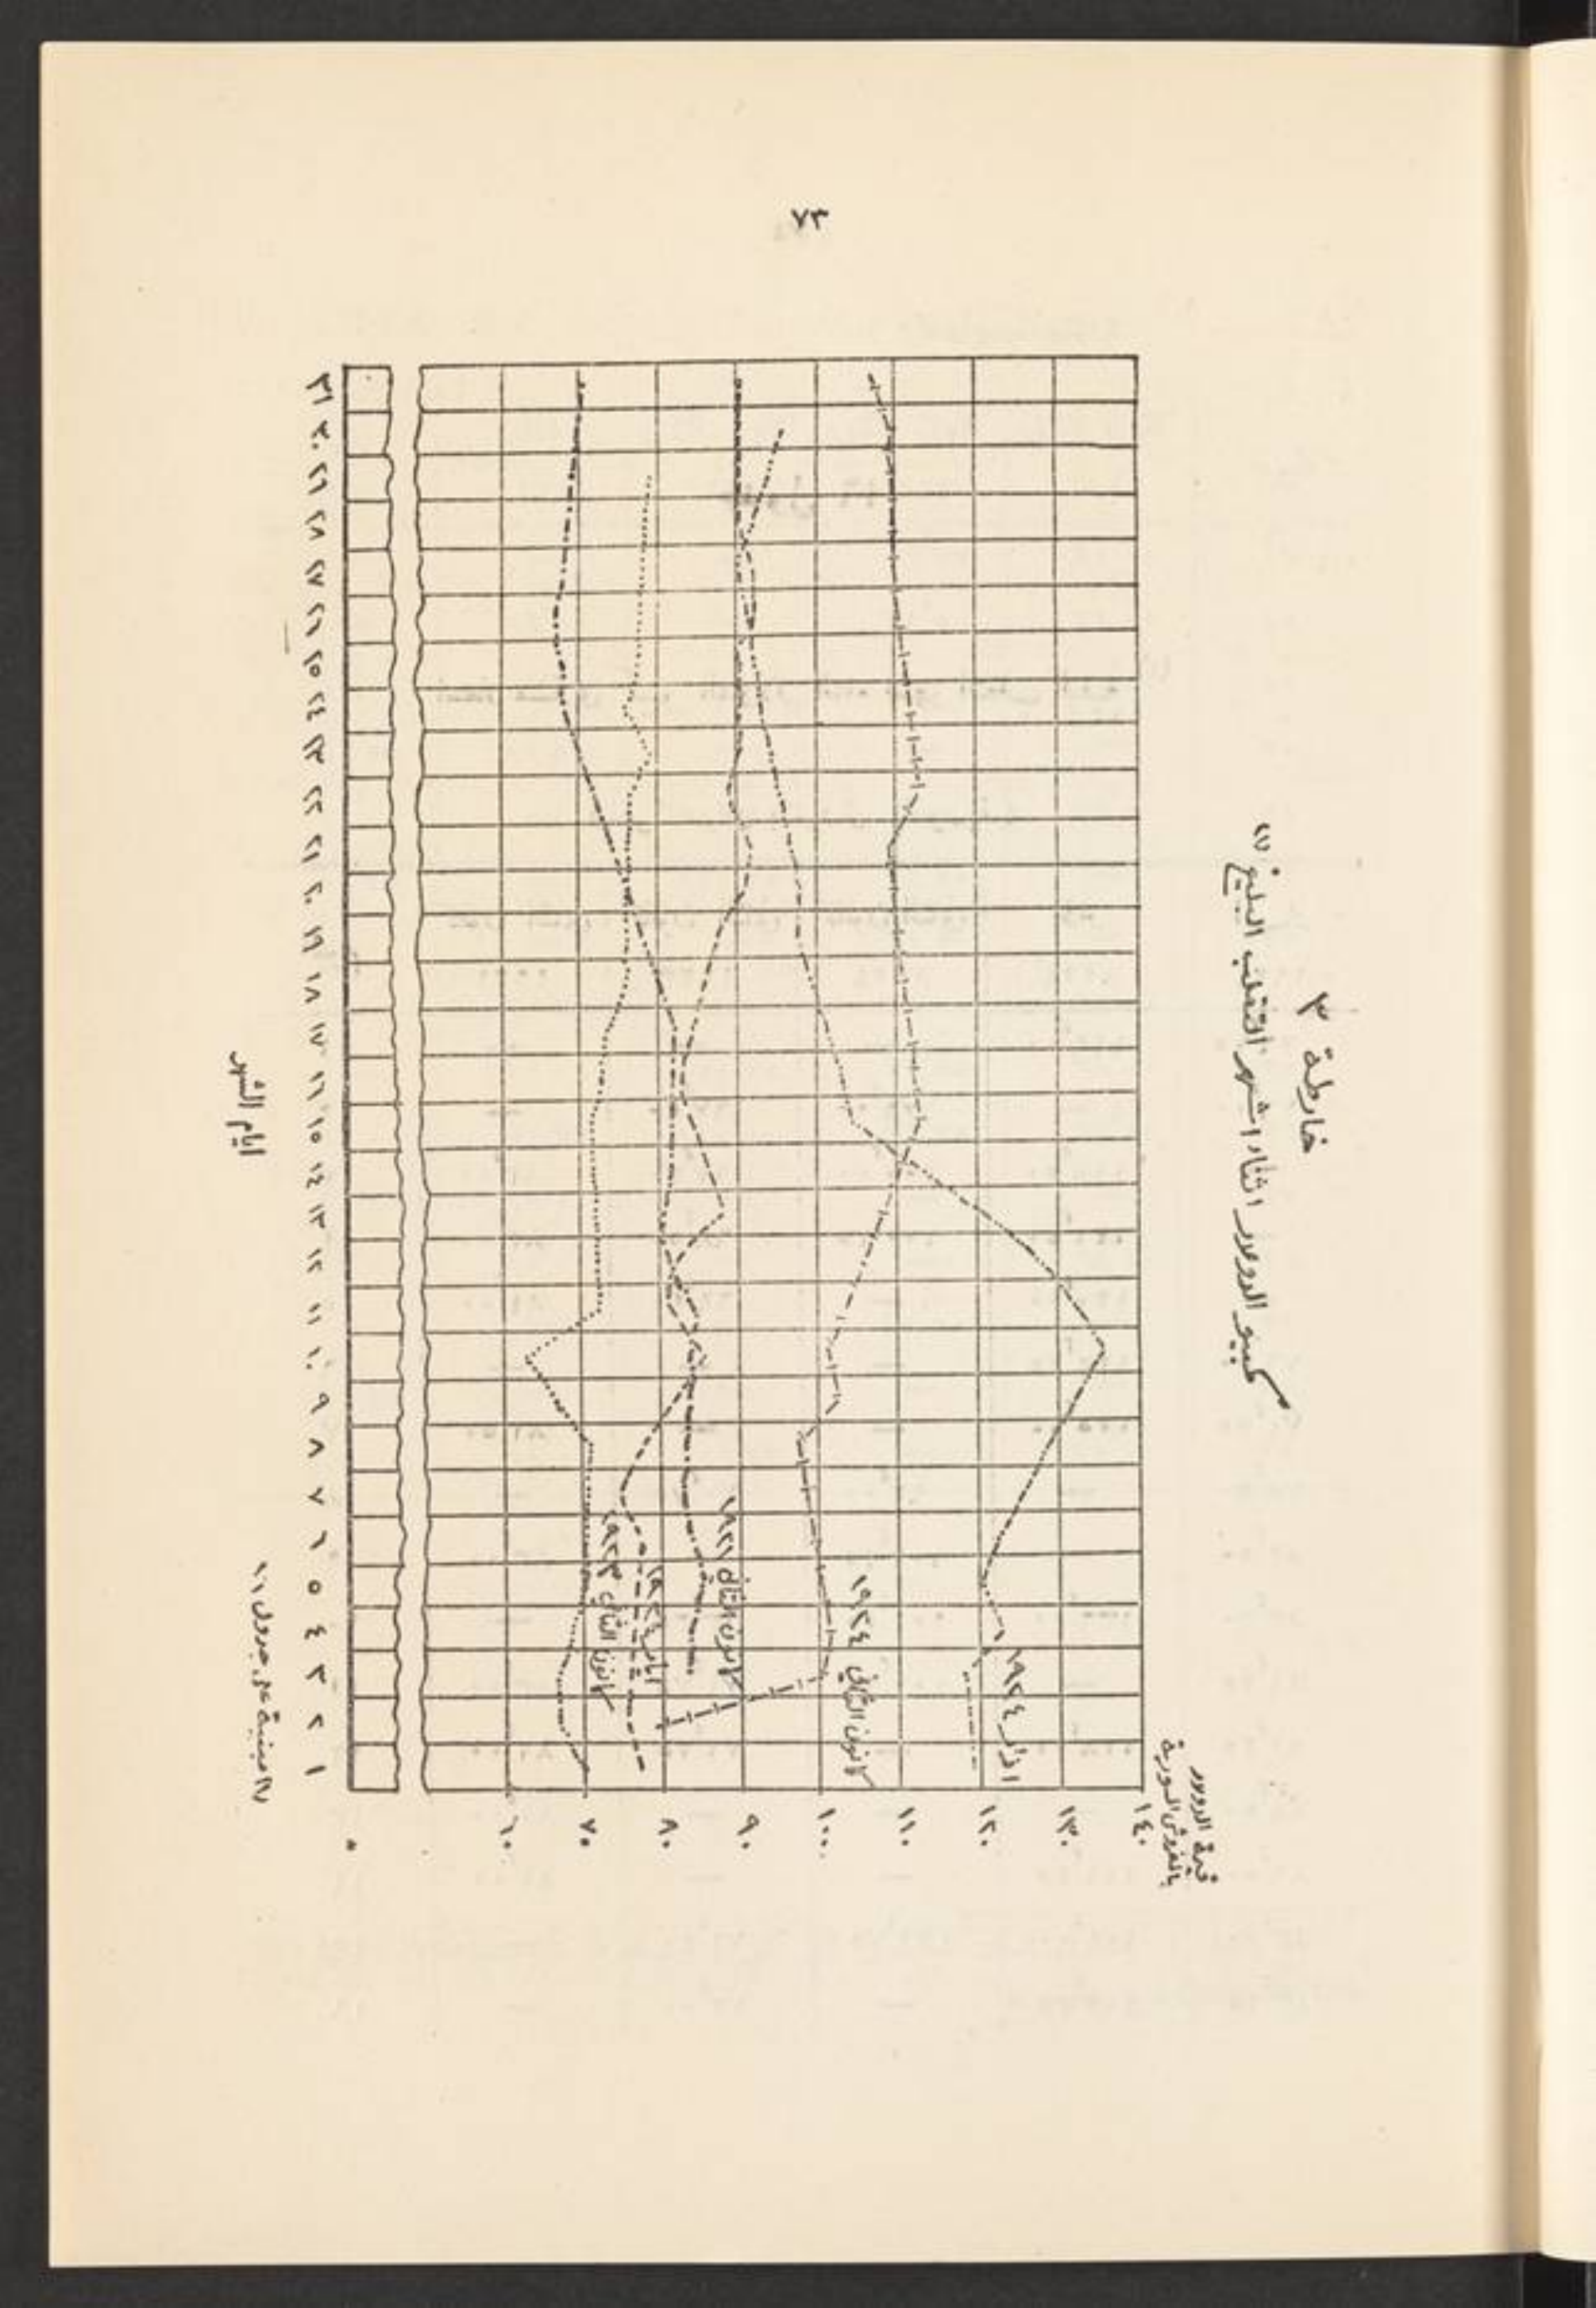 ٧٣
خارطة ٣
كمبيو الدولار اثناء اشهر التقلب البليغ (١)
قيمة الدولار
بالغروش السورية
١٤٠
١٣٠
١٢٠
١١٠
١٠٠
٩٠
٨٠
٧٠
٦٠
٠
اذار ١٩٢٤
كانون الثاني ١٩٢٤
كانون الثاني ١٩٢١
كانون الثاني ١٩٢٣
١ ٢ ٣ ٤ ٥ ٦ ٧ ٨ ٩ ١٠ ١١ ١٢ ١٣ ١٤ ١٥ ١٦ ١٧ ١٨ ١٩ ٢٠ ٢١ ٢٢ ٢٣ ٢٤ ٢٥ ٢٦ ٢٧ ٢٨ ٢٩ ٣٠ ٣١
ايام الشهر
(١) مبنية على جدول ١٦